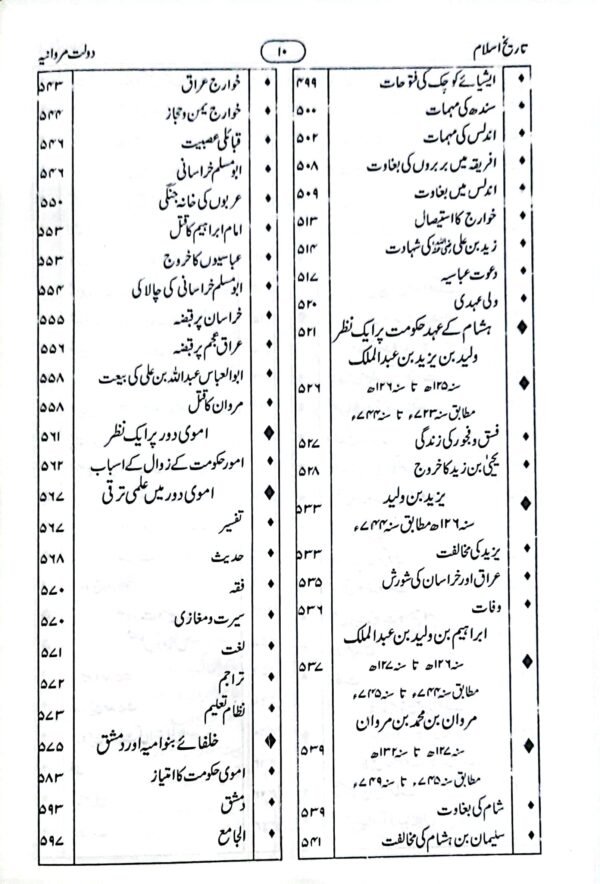 تاریخ اسلام ۱۰ دولت مروانیہ
♦ ایشیائے کوچک کی فتوحات ۴۹۹
♦ سندھ کی مہمات ۵۰۰
♦ اندلس کی مہمات ۵۰۲
♦ افریقہ میں بربروں کی بغاوت ۵۰۸
♦ اندلس میں بغاوت ۵۰۹
♦ خوارج کا استیصال ۵۱۳
♦ زید بن علی رضی اللہ عنہ کی شہادت ۵۱۴
♦ دعوت عباسیہ ۵۱۷
♦ ولی عہدی ۵۲۰
♦ ہشام کے عہد حکومت پر ایک نظر ۵۲۱
ولید بن یزید بن عبدالملک
♦ سنہ ۱۲۵ھ تا سنہ ۱۲۶ھ ۵۲۶
مطابق سنہ ۷۲۳ء تا سنہ ۷۴۴ء
♦ فسق و فجور کی زندگی ۵۲۷
♦ یحییٰ بن زید کا خروج ۵۲۸
♦ یزید بن ولید ۵۳۳
سنہ ۱۲۶ھ مطابق سنہ ۷۴۴ء
♦ یزید کی مخالفت ۵۳۳
♦ عراق اور خراسان کی شورش ۵۳۵
♦ وفات ۵۳۶
ابراہیم بن ولید بن عبدالملک
♦ سنہ ۱۲۶ھ تا سنہ ۱۲۷ھ ۵۳۷
مطابق سنہ ۷۴۴ء تا سنہ ۷۴۵ء
مروان بن محمد بن مروان
♦ سنہ ۱۲۷ھ تا سنہ ۱۳۲ھ ۵۳۹
مطابق سنہ ۷۴۵ء تا سنہ ۷۴۹ء
♦ شام کی بغاوت ۵۳۹
♦ سلیمان بن ہشام کی مخالفت ۵۴۱
♦ خوارج عراق ۵۴۳
♦ خوارج یمن و حجاز ۵۴۴
♦ قبائلی عصبیت ۵۴۶
♦ ابومسلم خراسانی ۵۴۶
♦ عربوں کی خانہ جنگی ۵۵۰
♦ امام ابراہیم کا قتل ۵۵۳
♦ عباسیوں کا خروج ۵۵۳
♦ ابومسلم خراسانی کی چالاکی ۵۵۴
♦ خراسان پر قبضہ ۵۵۵
♦ عراق عجم پر قبضہ ۵۵۶
♦ ابوالعباس عبداللہ بن علی کی بیعت ۵۵۸
♦ مروان کا قتل ۵۵۸
♦ اموی دور پر ایک نظر ۵۶۱
♦ امور حکومت کے زوال کے اسباب ۵۶۲
♦ اموی دور میں علمی ترقی ۵۶۷
♦ تفسیر ۵۶۷
♦ حدیث ۵۶۸
♦ فقہ ۵۷۰
♦ سیرت و مغازی ۵۷۰
♦ لغت ۵۷۱
♦ تراجم ۵۷۲
♦ نظام تعلیم ۵۷۳
♦ خلفائے بنو امیہ اور دمشق ۵۷۵
♦ اموی حکومت کا امتیاز ۵۸۳
♦ دمشق ۵۹۳
♦ الجامع ۵۹۷